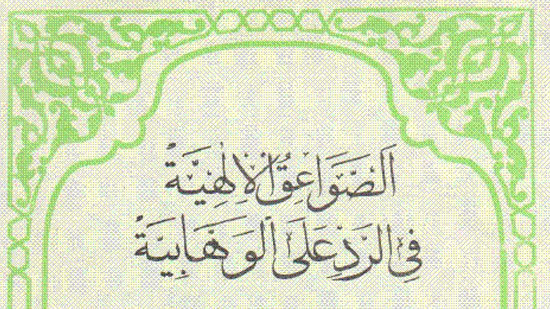 اَلصَّوَاعِقُ الْاِلٰهِيَّةْ
فِي الرَّدِّ عَلَى الْوَهَّابِيَّةْ